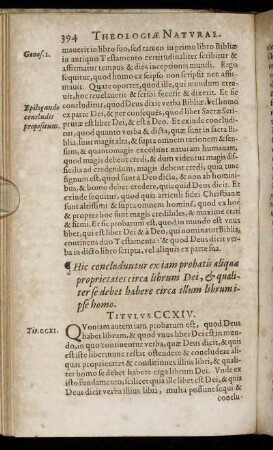 394 THEOLOGIÆ NATVRAL.
Genes. 1.
mauerit in libro suo, sed tamen in primo libro Bibliæ
in antiquo Testamento certitudinaliter scribitur &
affirmatur tempus & dies inceptionis mundi. Ergo
sequitur, quod homo ex seipso non scripsit nec affir-
mauit. Quare oportet, quod ille, qui mundum crea-
uit, hoc reuelauerit & scribi fecerit & dixerit. Et sic
Epilogando
concludis
propositum.
concluditur, quod Deus dixit verba Bibliæ. Vel homo
ex parte Dei; & per consequés, quod liber Sacræ Scri-
pturæ est liber Dei, & est à Deo. Et quia probatum est
quod, quanto verba & dicta, quæ sunt in sacra Bi-
blia, sunt magis alta, & supra omnem rationem & sen-
sum, & quantomagis videntur contra humanitatem,
quod magis debent credi, & dum videntur magis dif-
ficilia ad credendum, magis debent credi, quia tunc
signum est, quod sunt à Deo dicta, & non ab homini-
bus, & homo debet credere, quicquid Deus dicit. Et
exinde sequitur, quod quia articuli fidei Christianæ
sunt altissimi & supra omnem hominé, quod ex hoc
& propter hoc sunt magis credibiles, & maxime certi
& firmi. Et sic probatum est, quod in mundo est vnus
liber, qui est liber Dei & à Deo, qui nominatur Biblia,
continens duo Testamenta: & quod Deus dicit ver-
ba in dicto libro scripta, vel aliquis ex parte sua.
¶ Hic concluduntur ex iam probatis aliqua
proprietates circa librum Dei, & quali-
ter se debet habere circa illum librum i-
pse homo.
TITVLVS CCXIV.
Tit. CCXI.
QVoniam autem iam probatum est, quod Deus
habet librum, & quod vnus liber Dei est in mun-
do, in quo continentur verba, quæ Deus dicit, & quis
est iste liber: nunc restat ostendere & concludere ali-
quas proprietates & conditiones illius libri, & quali-
ter homo se debet habere erga librum Dei. Vnde ex
isto fundamento, scilicet quia ille liber est Dei, & quia
Deus dicit verba illius libri, multa possunt sequi &
conclu-